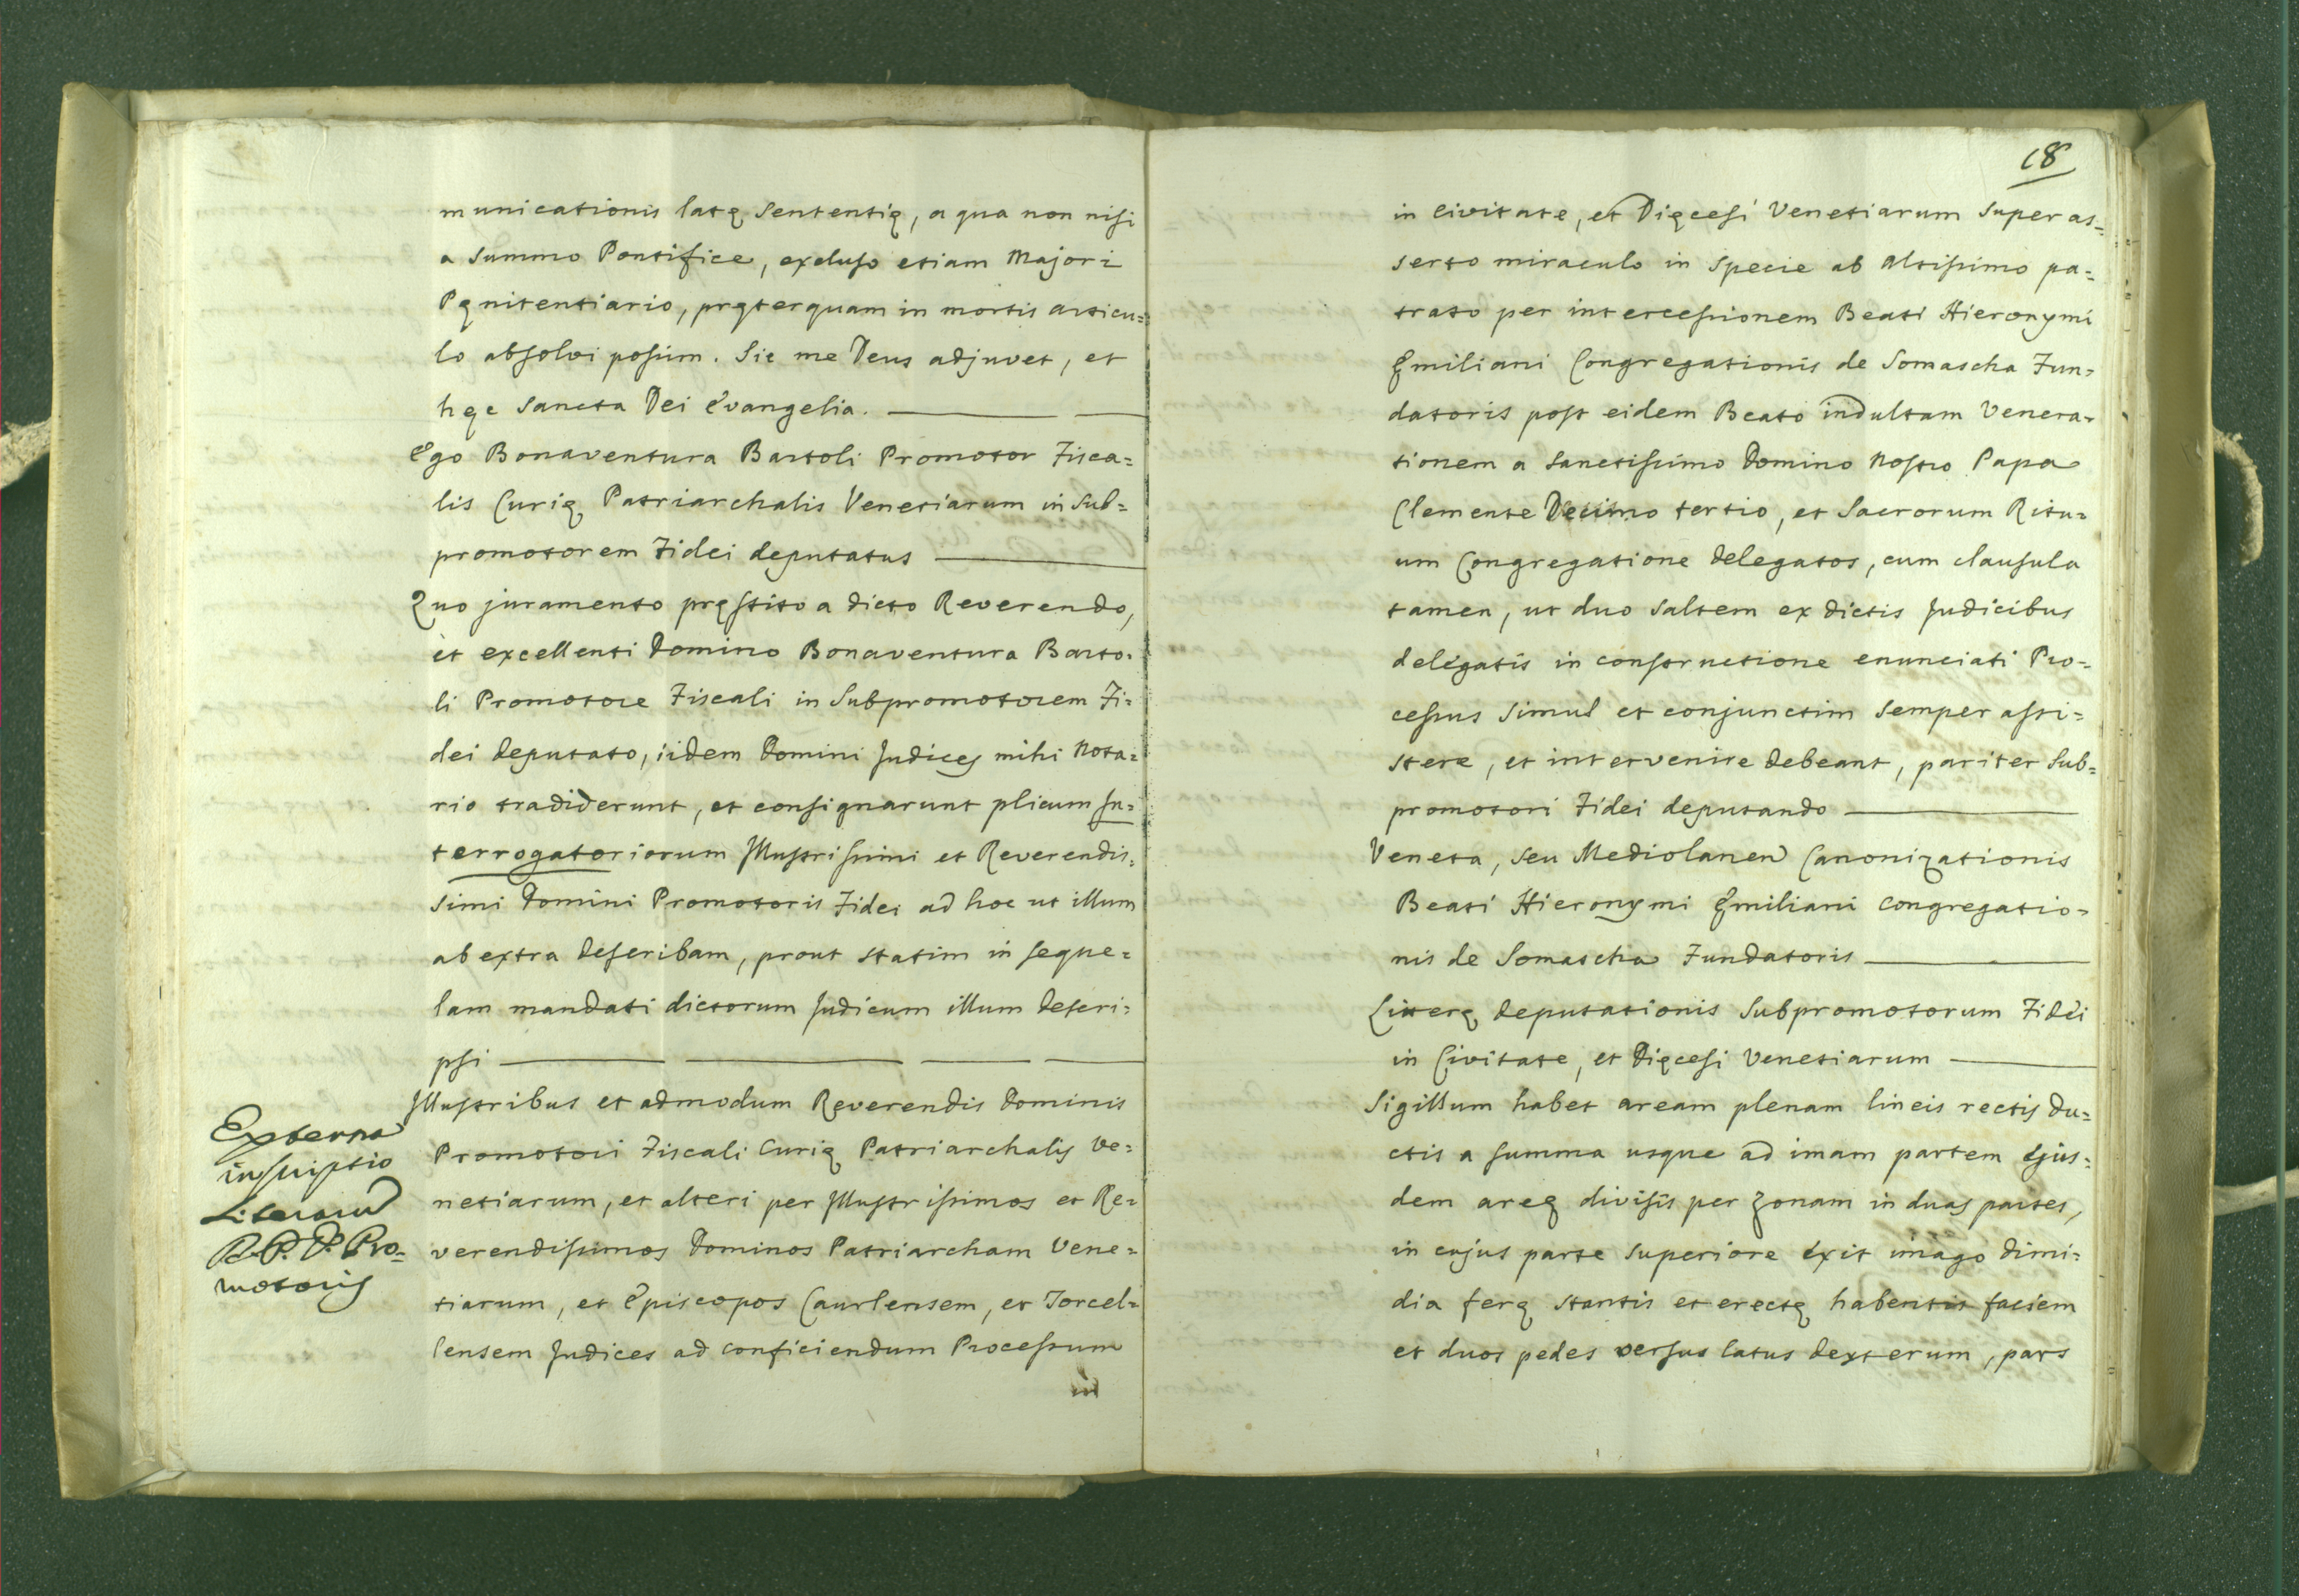 municationis latę sententię, a qua non nisi
a Summo Pontifice, excluso etiam Majori
Pęnitentiario, pręterquam in mortis articu=
lo absolvi possim. Sic me Deus adjuvet, et
hęc Sancta Dei Evangelia.
Ego Bonaventura Bartoli Promotor Fisca=
lis Curię Patriarchalis Venetiarum in Sub=
promotorem Fidei deputatus
Quo juramento pręstito a dicto Reverendo,
et excellenti Domino Bonaventura Barto=
li Promotore Fiscali in Subpromotorem Fi=
dei deputato, iidem Domini Judices mihi Nota=
rio tradiderunt, et consignarunt plicum In=
terrogatoriorum Illustrissimi et Reverendis=
simi Domini Promotoris Fidei ad hoc ut illum
ab extra describam, prout statim in seque=
lam mandati dictorum Judicum illum descri=
psi
Externa
inscriptio
Literarum
R. P. D. Pro=
motoris
Illustribus et admodum Reverendis Dominis
Promotori Fiscali Curię Patriarchalis Ve=
netiarum, et alteri per Illustrissimos et Re=
verendissimos Dominos Patriarcham Vene=
tiarum, et Episcopos Caurlensem, et Torcel=
lensem Judices ad conficiendum Processum
in
18
in Civitate, et Dięcesi Venetiarum super as=
serto miraculo in specie ab Altissimo pa=
trato per intercessionem Beati Hieronymi
Ęmiliani Congregationis de Somascha Fun=
datoris post eidem Beato indultam Venera=
tionem a Sanctissimo Domino Nostro Papa
Clemente Decimo tertio, et Sacrorum Ritu=
um Congregatione delegatos, cum clausula
tamen, ut duo saltem ex dictis Judicibus
delegatis in constructione enunciati Pro=
cessus simul et conjunctim semper assi=
stere, et intervenire debeant, pariter Sub=
promotori Fidei deputando
Veneta, seu Mediolanen Canonizationis
Beati Hieronymi Ęmiliani Congregatio=
nis de Somascha Fundatoris
Litterę deputationis Subpromotorum Fidei
in Civitate, et Dięcesi Venetiarum
Sigillum habet aream plenam lineis rectis du=
ctis a summa usque ad imam partem ejus=
dem areę divisis per zonam in duas partes,
in cujus parte superiore exit imago dimi=
dia ferę stantis et erectę habentis faciem
et duos pedes versus latus dexterum, pars